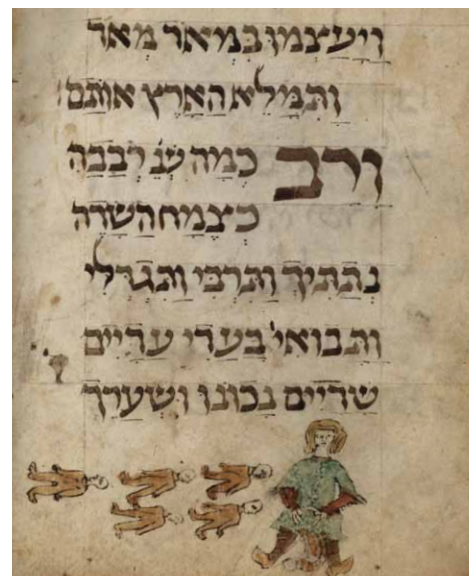 וַיַּעַצְמוּ בִּמְאֹד מְאֹד
וַתִּמָּלֵא הָאָרֶץ אוֹתָם
וָרָב כְּמָה שֶׁנֶּ׳ רְבָבָה
כְּצֶמַח הַשָּׂדֶה
נְתַתִּיךְ וַתִּרְבִּי וַתִּגְדְּלִי
וַתָּבוֹאִי בַּעֲדִי עֲדָיִים
שָׁדַיִים נָכוֹנוּ וּשְׂעָרֵךְ